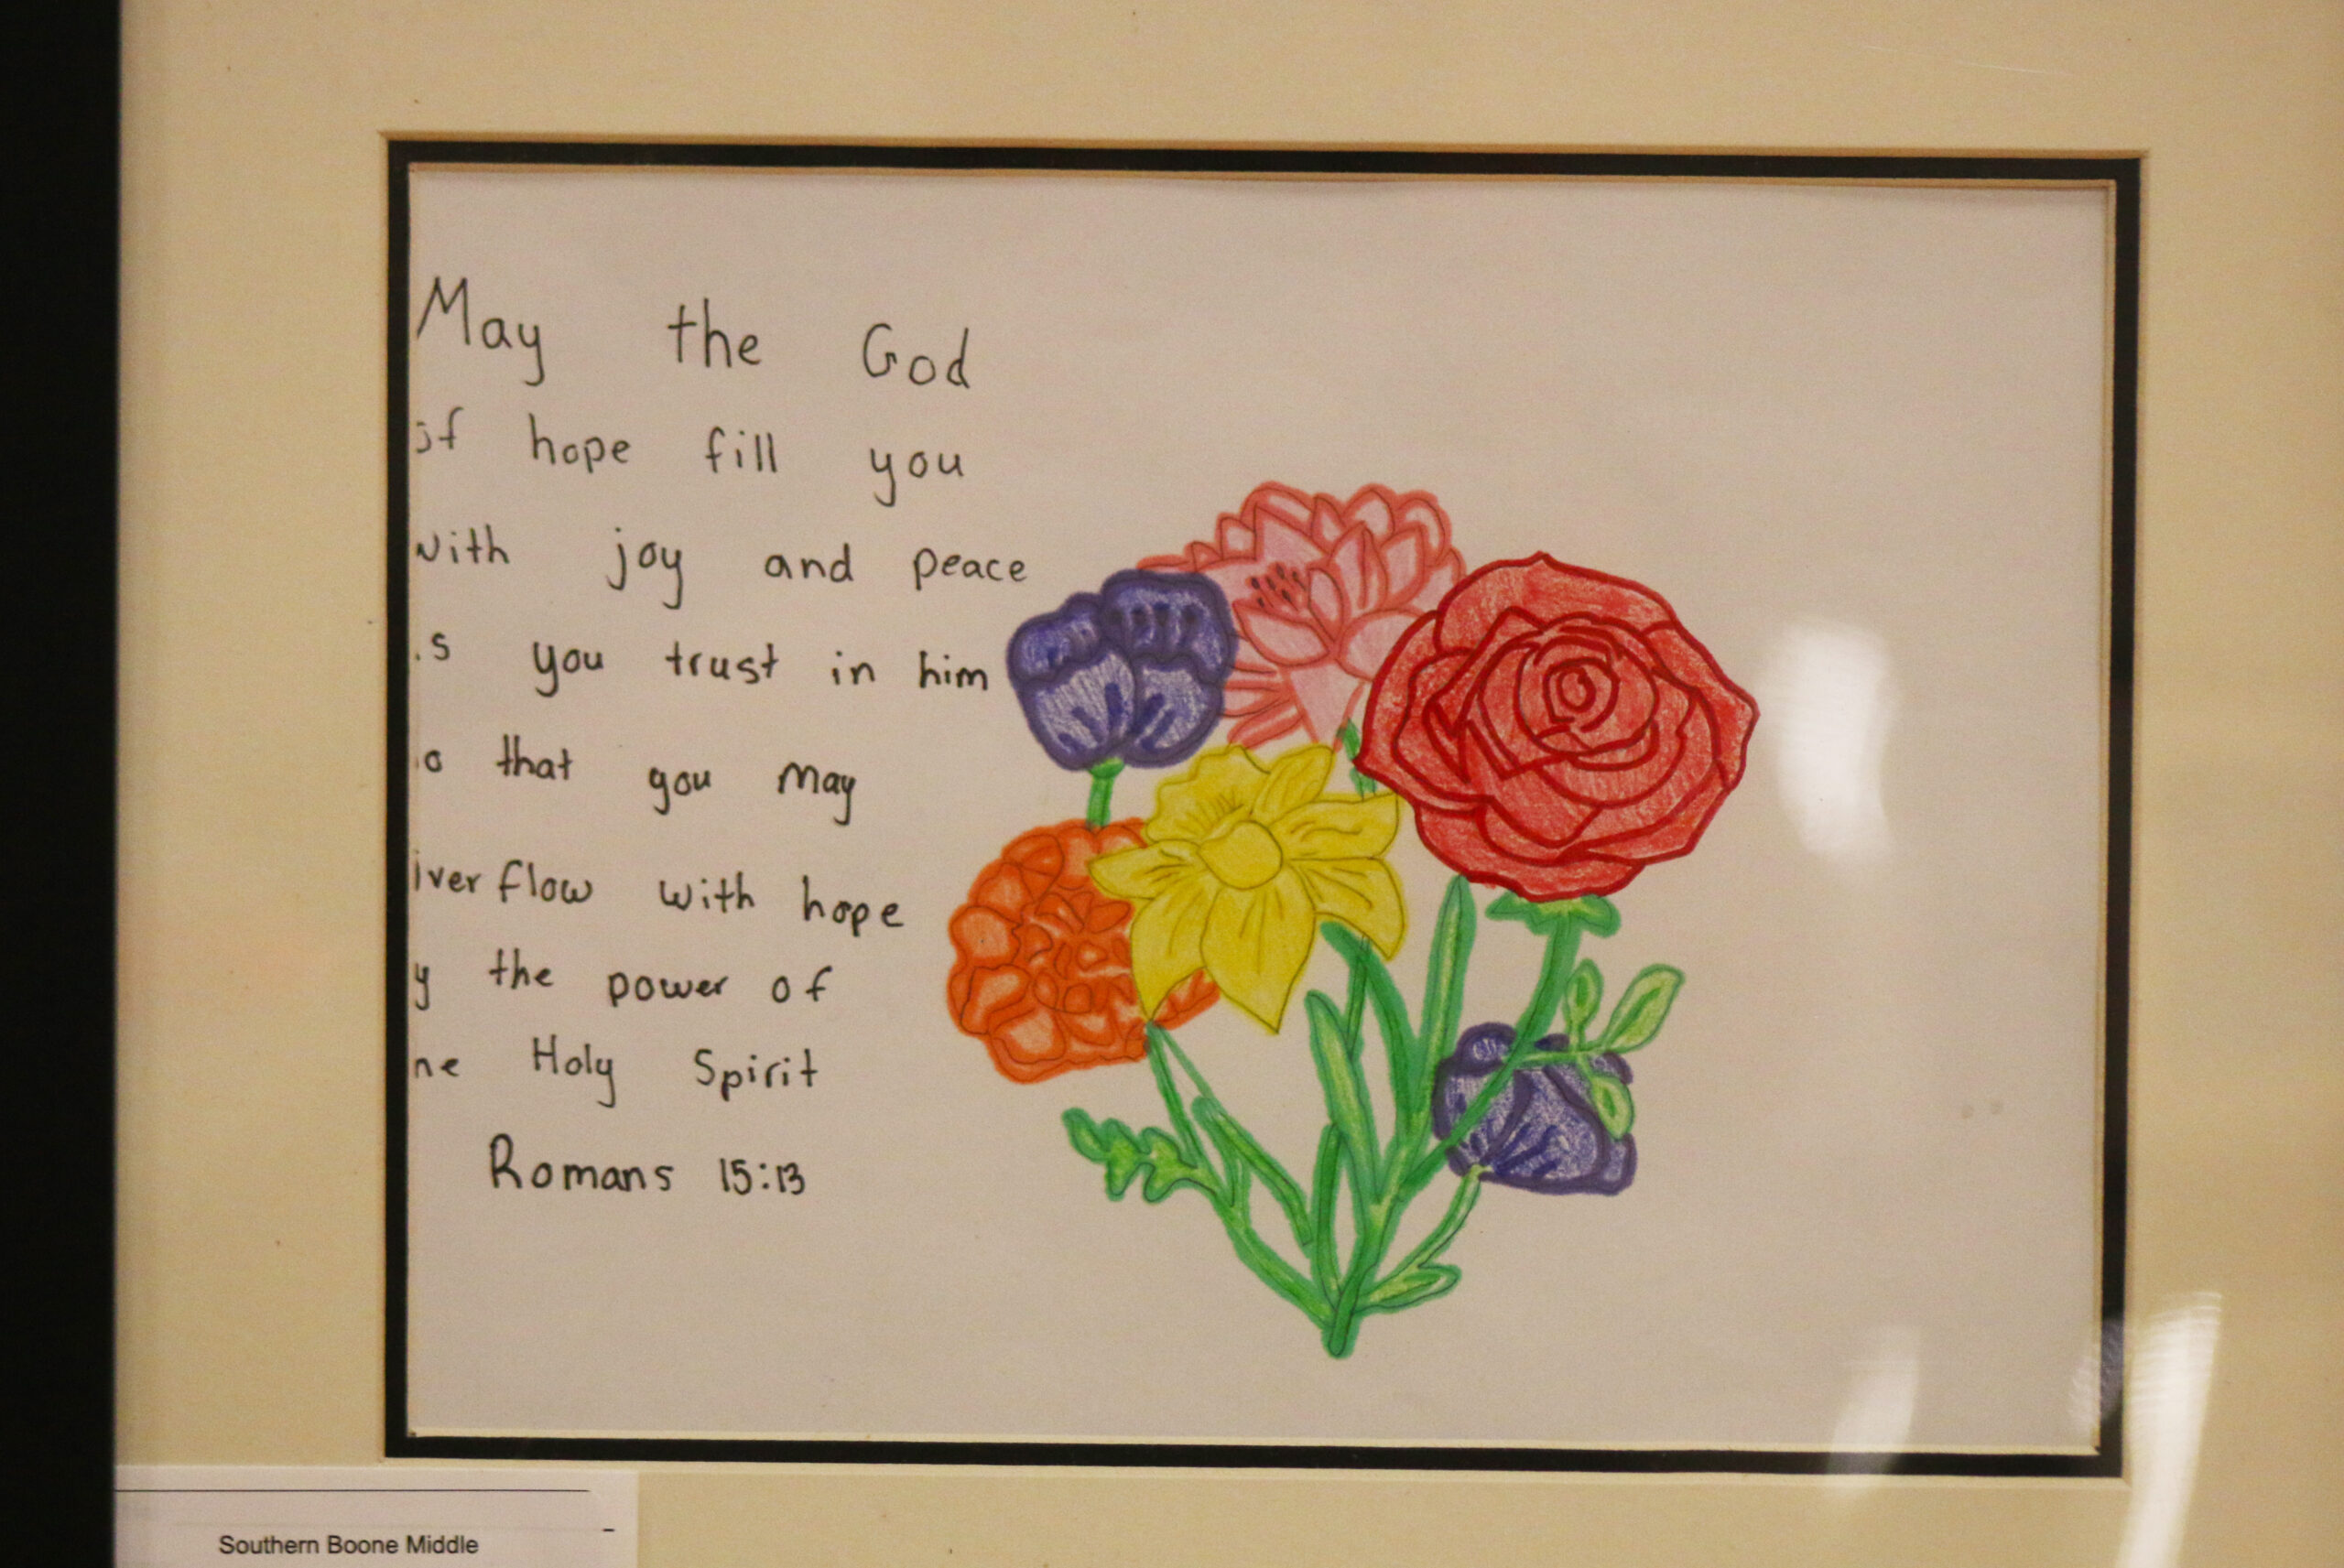 May the God
of hope fill you
with joy and peace
s you trust in him
o that you may
ver flow with hope
y the power of
he Holy Spirit
Romans 15:13
Southern Boone Middle